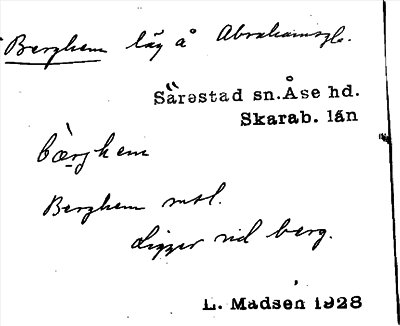 Berghem läg å Abrahamsgb.
Särestad sn. Åse hd.
Skarab. län
bæ̀rghem
Berghem
Ligger vid berg.
L. Madsen 1928